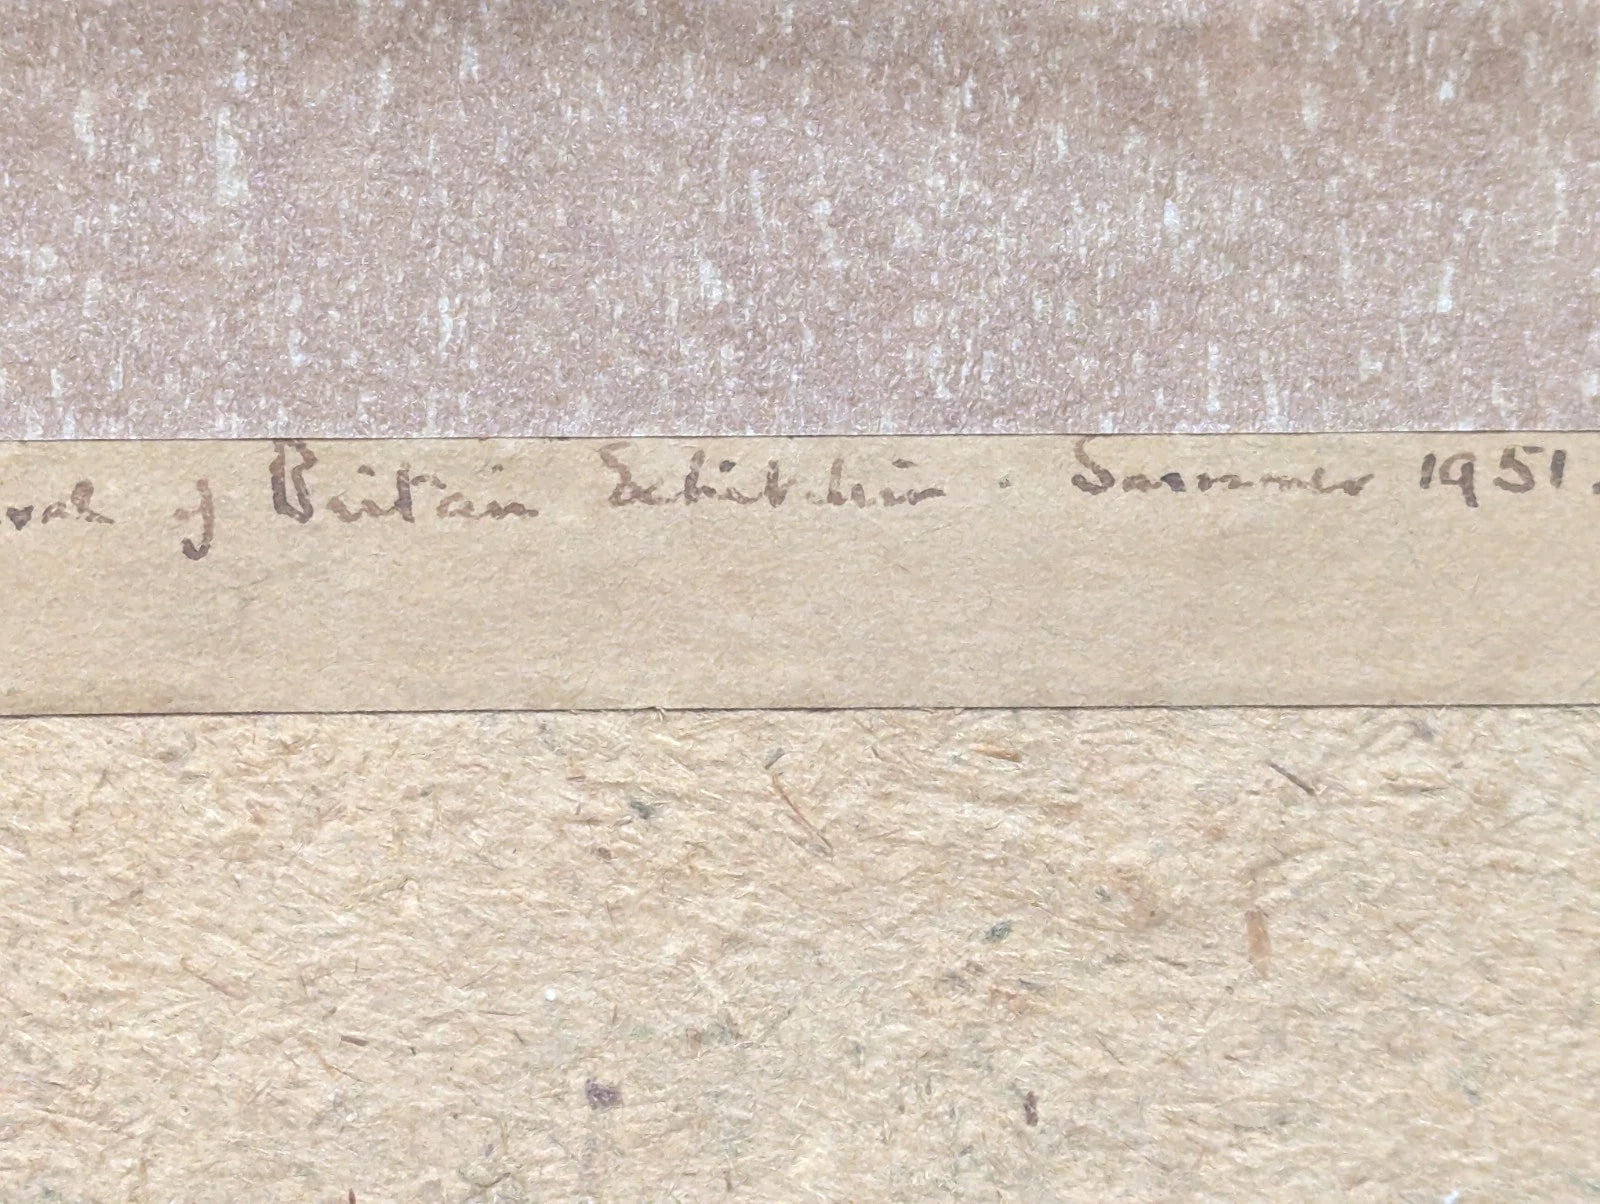 of Britain Exhibition. Summer 1951.